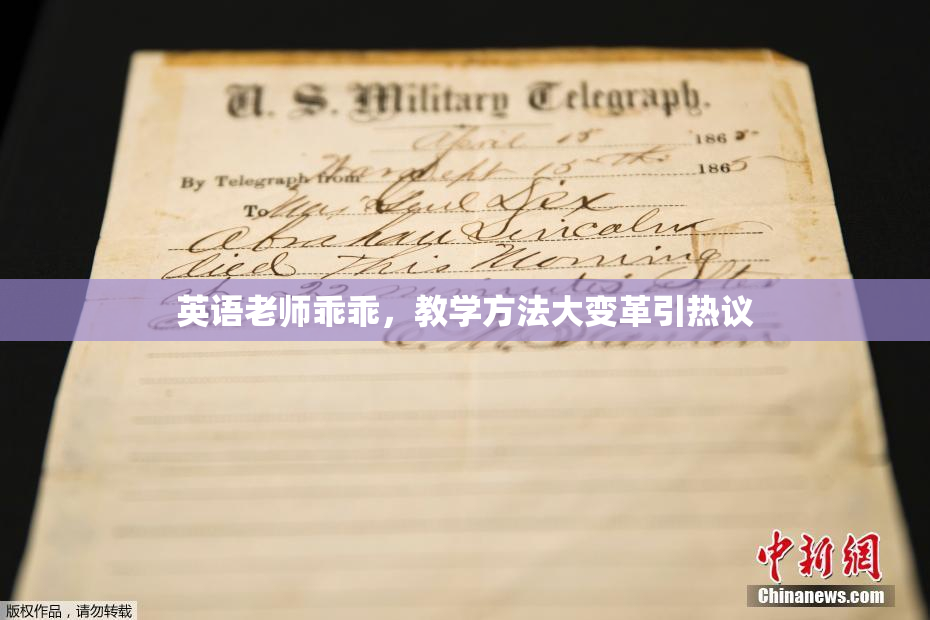 U. S. Military Telegraph.
April 15 1865
By Telegraph from War Dept 15th 1865
To Maj Genl Dix
Abraham Lincoln
died This Morning
at 22 minutes after
英语老师乖乖，教学方法大变革引热议
E. M. Stanton
中新网
Chinanews.com
版权作品，请勿转载